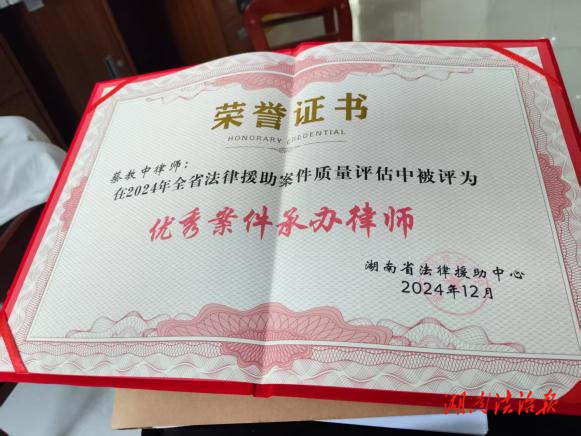 荣誉证书
HONORARY CREDENTIAL
蔡教中律师：
在2024年全省法律援助案件质量评估中被评为
优秀案件承办律师
湖南省法律援助中心
2024年12月
湖南法治报